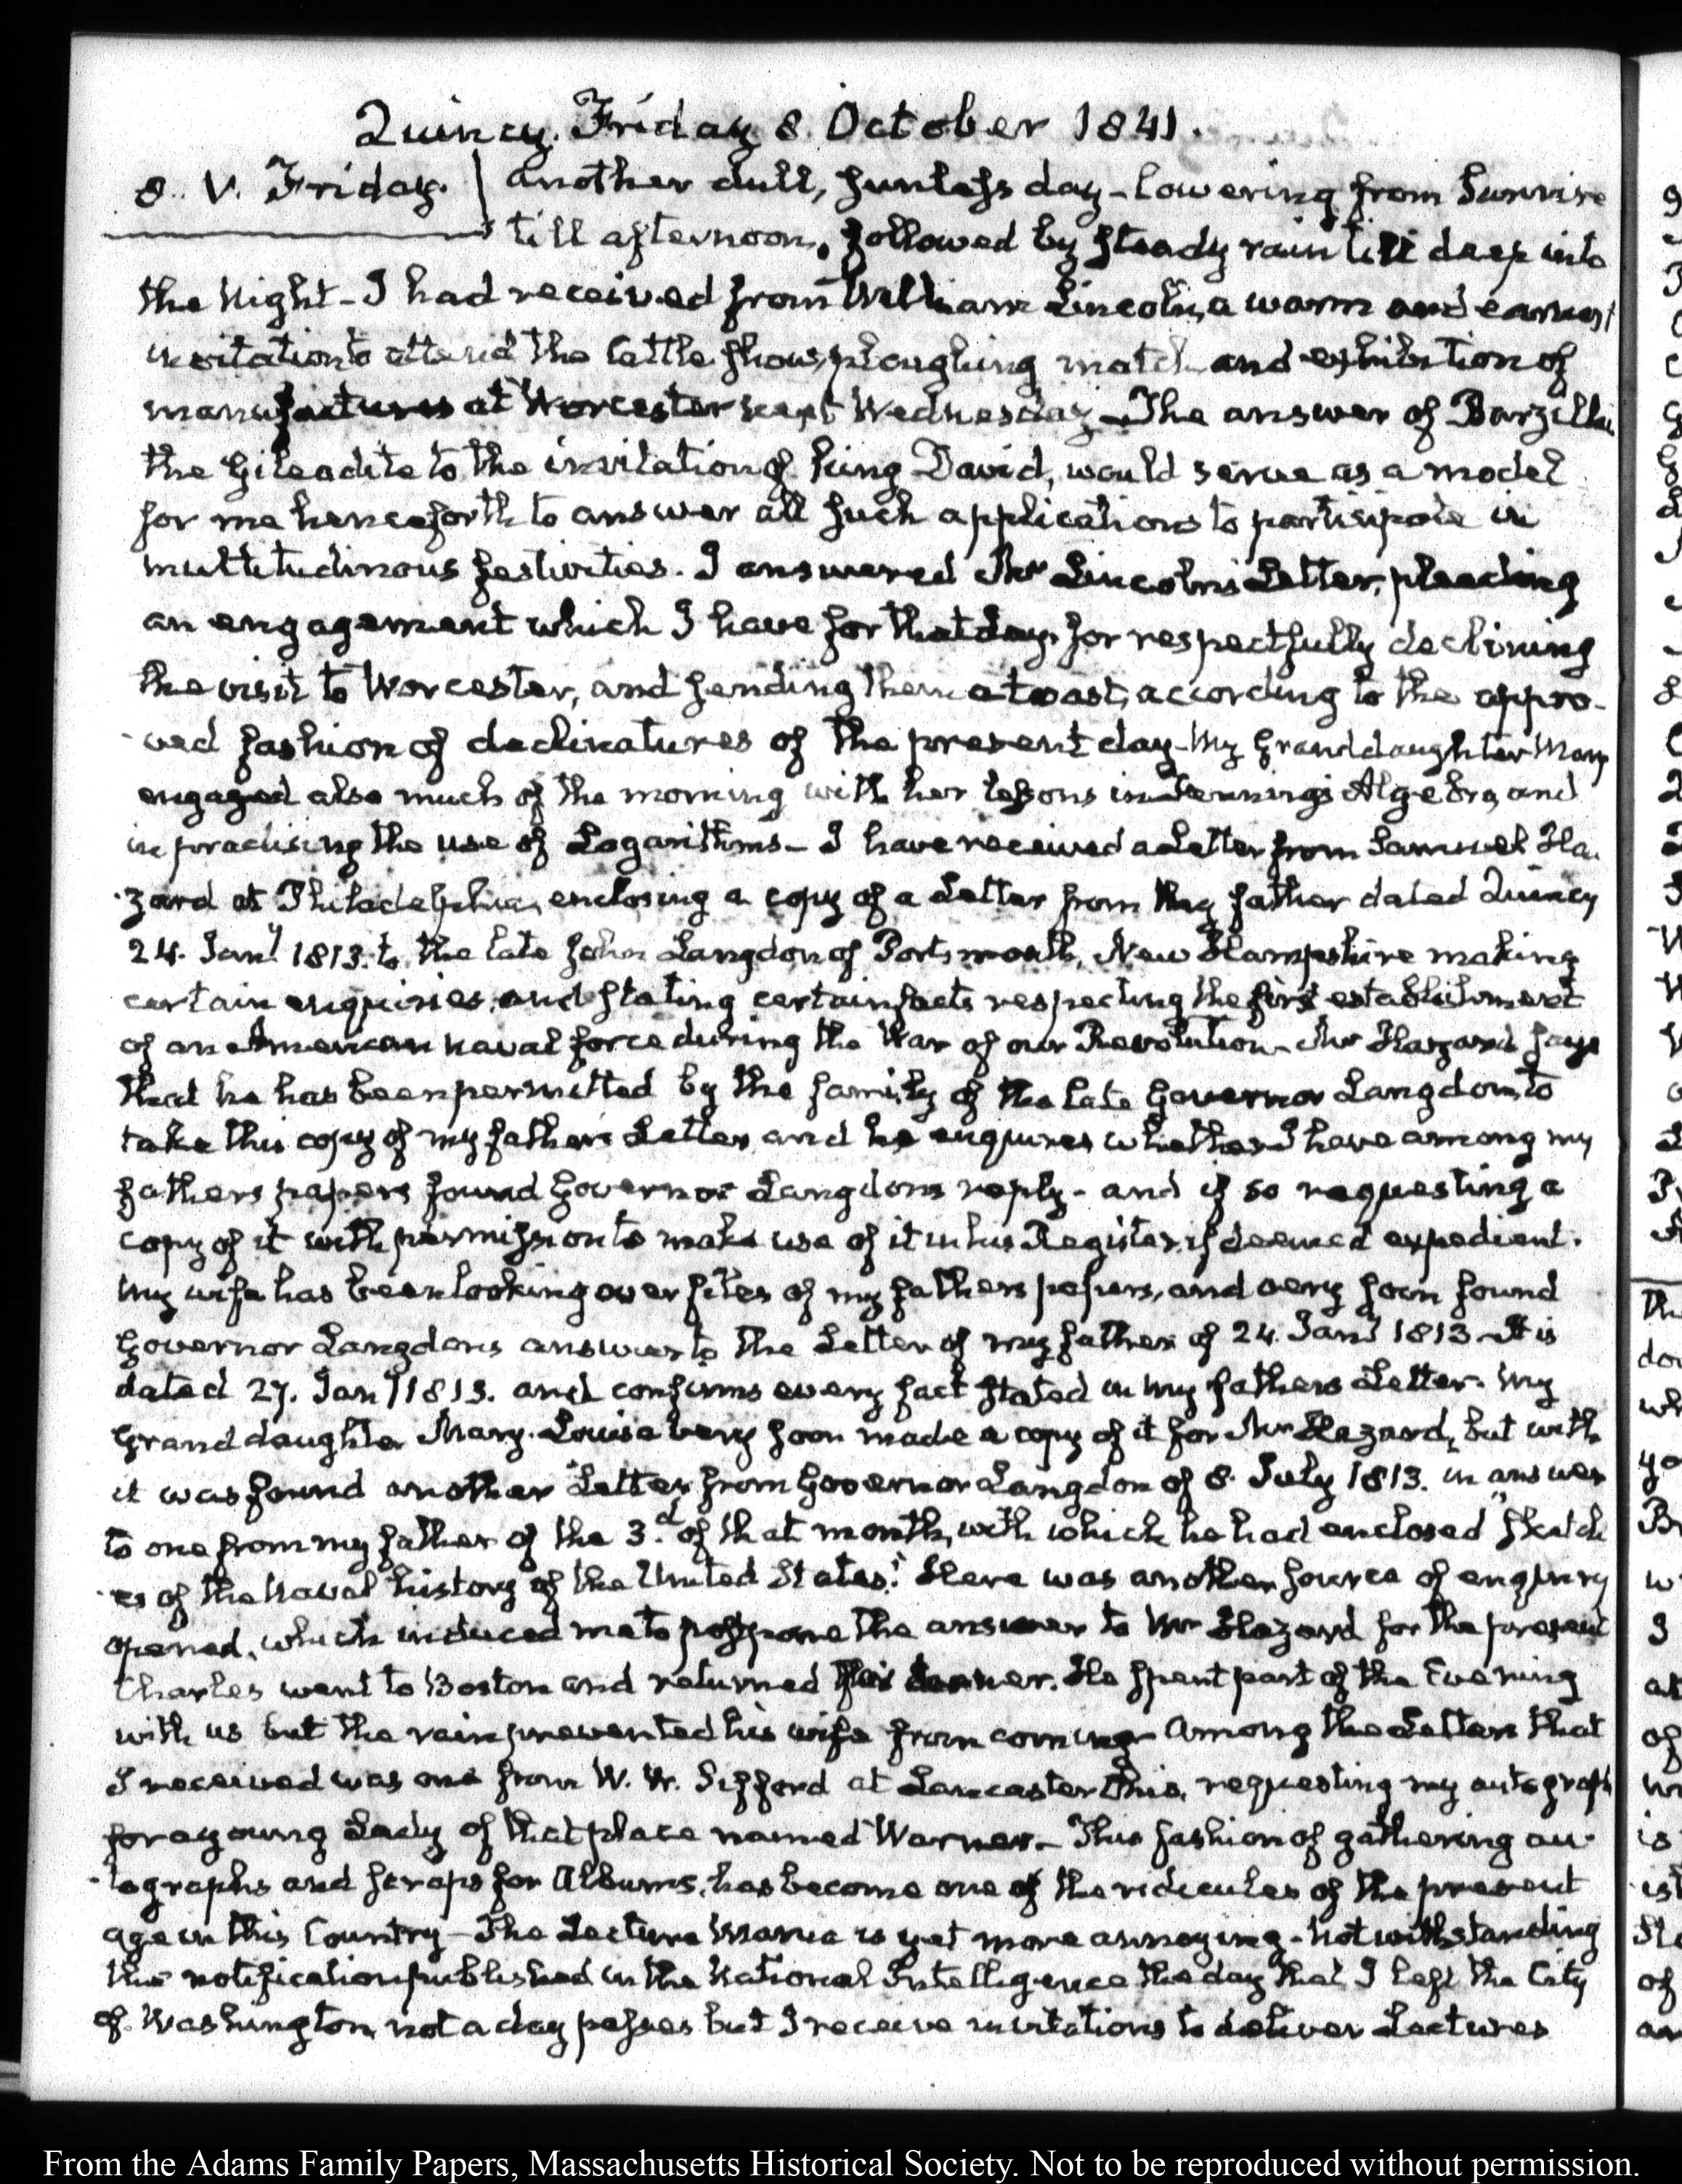 Quincy. Friday 8. October 1841.
8. V. Friday. Another dull, sunless day - lowering from Sunrise
till afternoon, followed by steady rain till deep into
the Night - I had received from William Lincoln, a warm and earnest
invitation to attend the Cattle show, ploughing match and exhibition of
manufactures at Worcester next Wednesday - The answer of Barzillai
the Gileadite to the invitation of King David, would serve as a model
for me henceforth to answer all such applications to participate in
multitudinous festivities. I answered Mr Lincoln's Letter, pleading
an engagement which I have for that day, for respectfully declining
the visit to Worcester, and sending them a toast, according to the appro-
-ved fashion of declinatures of the present day - My Granddaughter Mary
engaged also much of the morning with her lessons in Algebra, and
in practising the use of Logarithms - I have received a Letter from Samuel Ha-
-zard at Philadelphia, enclosing a copy of a Letter from my father dated Quincy
24. Jany 1813. to the late John Langdon of Portsmouth, New Hampshire making
certain enquiries, and stating certain facts respecting the first establishment
of an American naval force during the War of our Revolution - Mr Hazard says
that he has been permitted by the family of the late Governor Langdon, to
take this copy of my father's Letter, and he enquires whether I have among my
fathers papers found Governor Langdons reply - and if so requesting a
copy of it with permission to make use of it in his Register, if deemed expedient.
My wife has been looking over files of my fathers papers, and very soon found
Governor Langdons answer to the Letter of my father of 24. Jany 1813. It is
dated 27. Jany 1813. and confirms every fact stated in my fathers Letter. My
Granddaughter Mary-Louisa very soon made a copy of it for Mr Hazard, but with
it was found another Letter from Governor Langdon of 8. July 1813. in answer
to one from my father of the 3.d of that month, with which he had enclosed "Sketch
-es of the Naval history of the United States." Here was another source of enquiry
opened, which induced me to postpone the answer to Mr Hazard for the present
Charles went to Boston and returned to dinner. He spent part of the Evening
with us but the rain prevented his wife from coming - Among the Letters that
I received was one from W. W. Sifford at Lancaster Ohio, requesting my autograph
for a young Lady of that place named Warner - This fashion of gathering au-
-tographs and scraps for Albums, has become one of the ridicules of the present
age in this Country - The Lecture Mania is yet more annoying - Notwithstanding
the notification published in the National Intelligence the day that I left the City
of Washington, not a day passes but I receive invitations to deliver Lectures
From the Adams Family Papers, Massachusetts Historical Society. Not to be reproduced without permission.